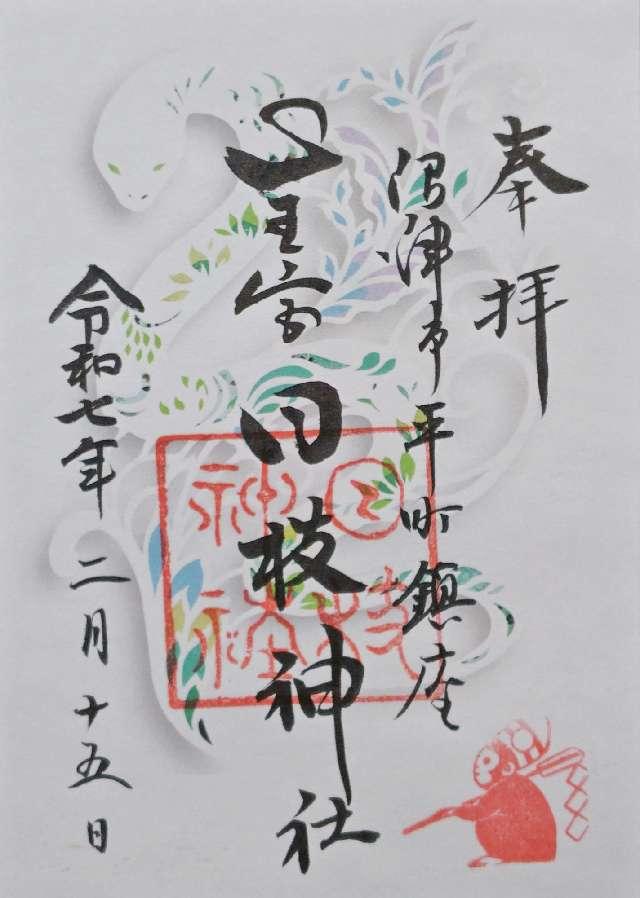 奉拝
沼津市平町鎮座
山王宮日枝神社
日枝神社
令和七年二月十五日